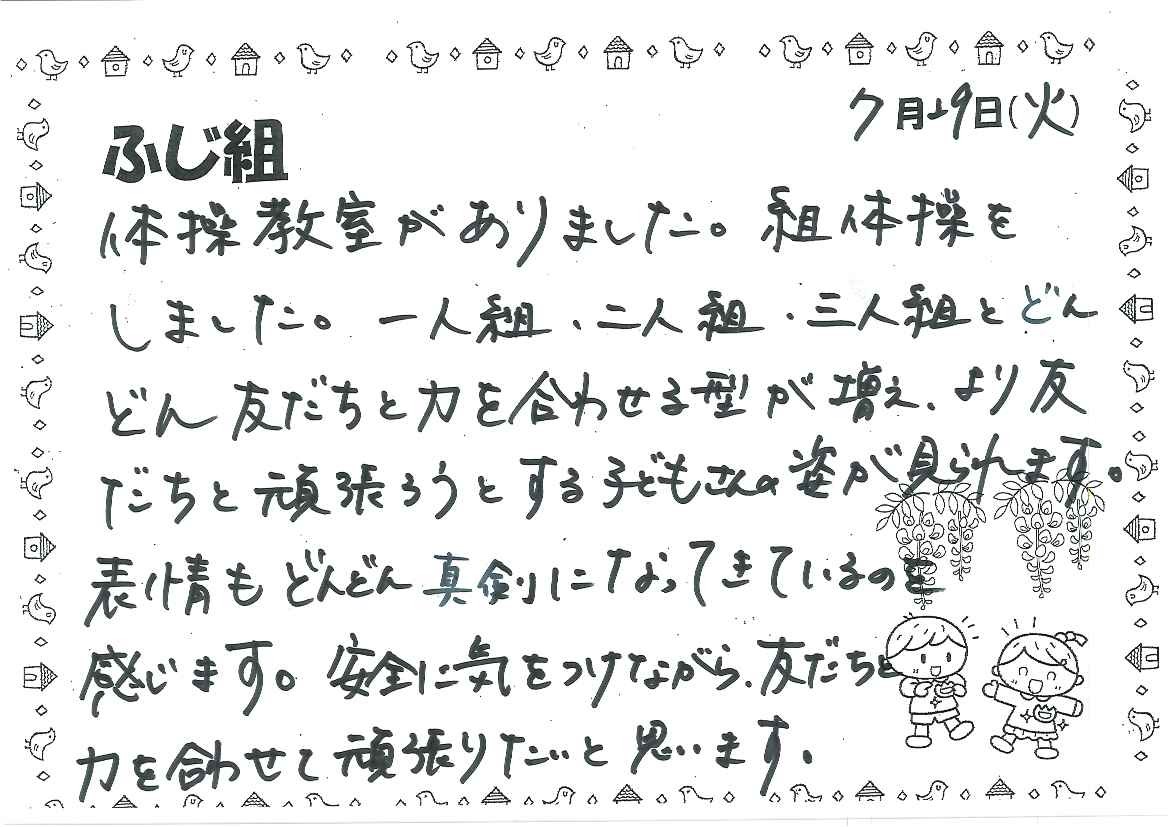 7月29日(火)
ふじ組
体操教室がありました。組体操を
しました。一人組、二人組、三人組とどん
どん友だちと力を合わせる型が増え、より友
だちと頑張ろうとする子どもさんの姿が見られます。
表情もどんどん真剣になってきているのを
感じます。安全に気をつけながら、友だちと
力を合わせて頑張りたいと思います。